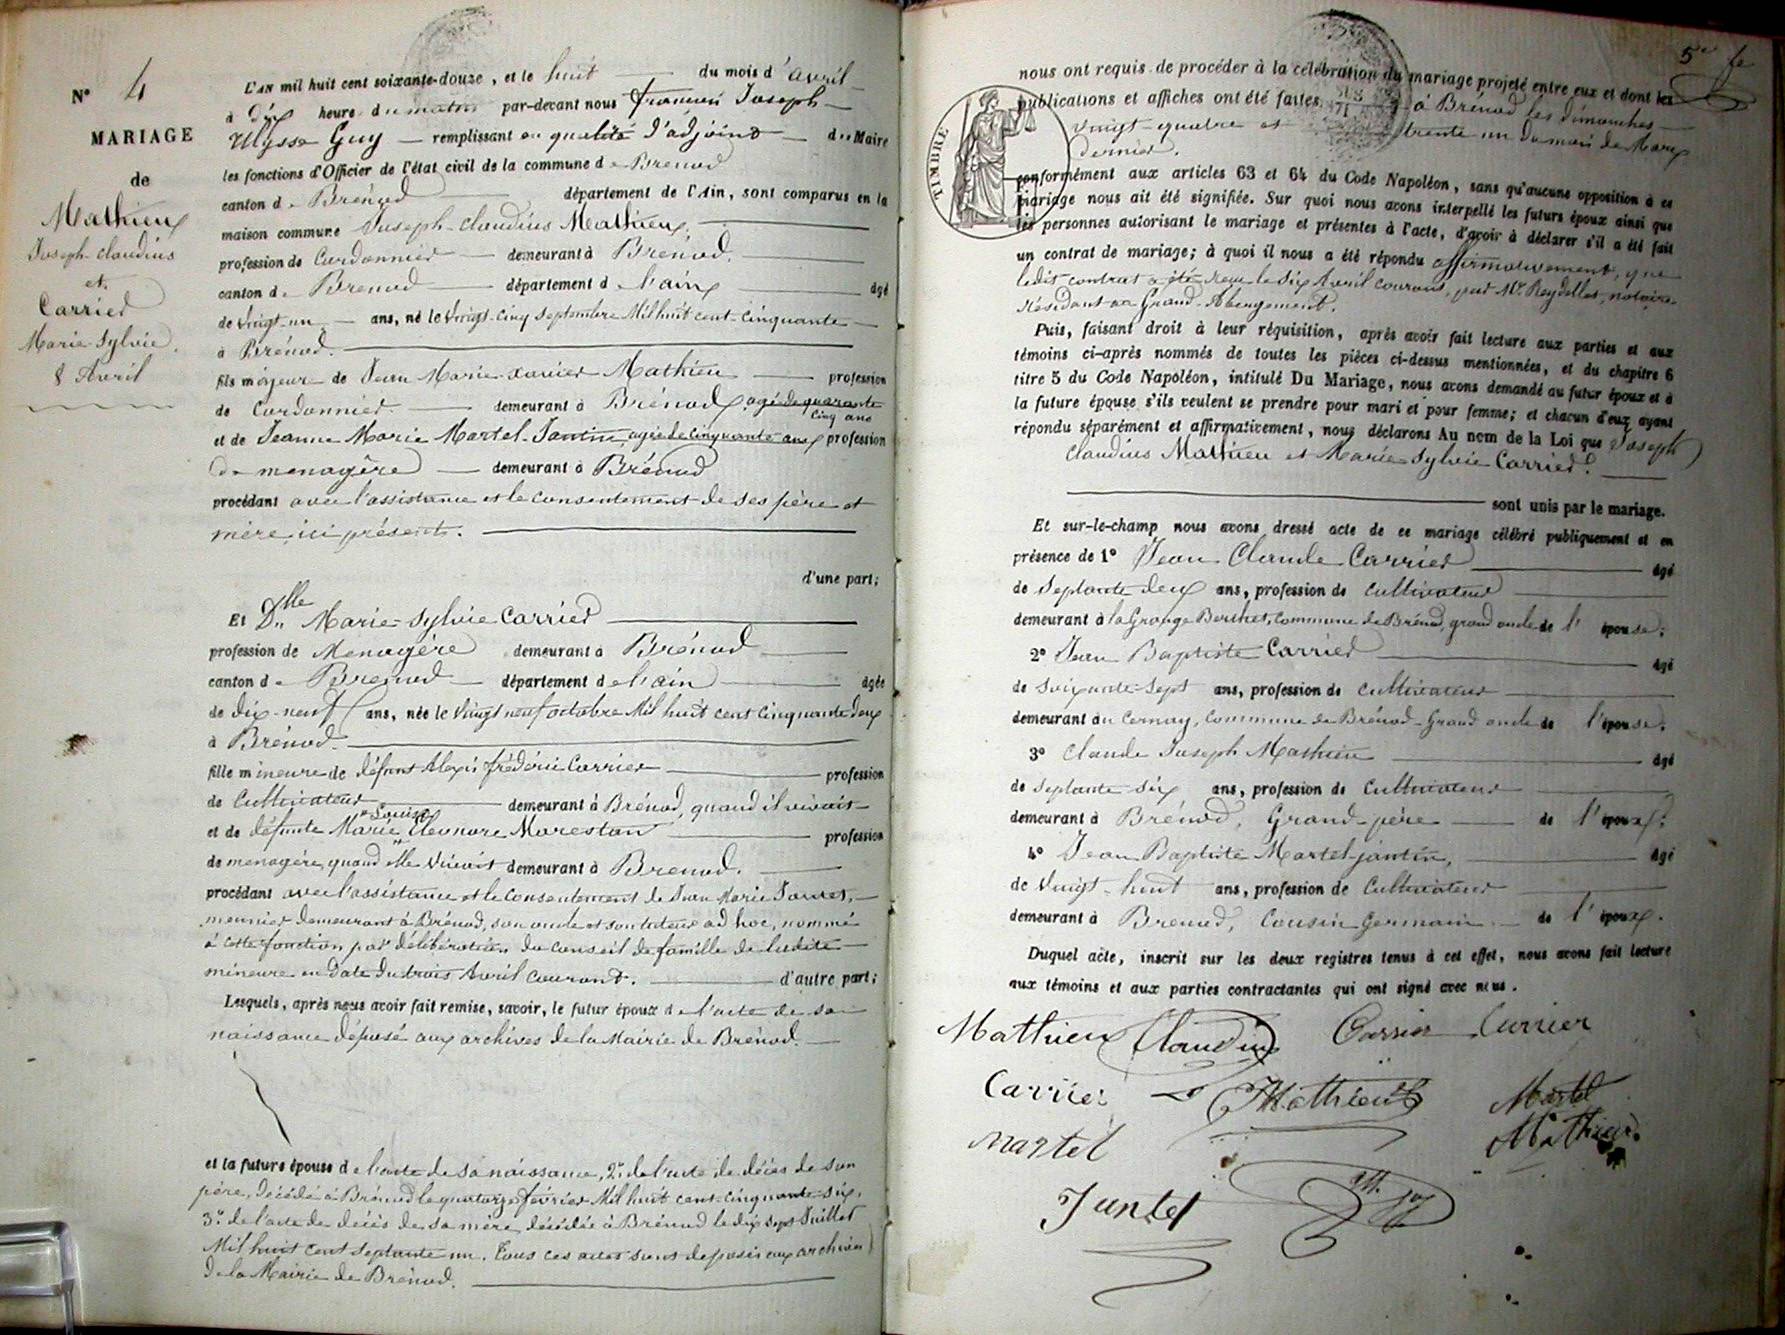 N° 4
MARIAGE
de
Mathieu
Joseph-Claudius
et
Carrier
Marie-Sylvie.
8 Avril
L'AN mil huit cent soixante-douze, et le huit du mois d'avril
à dix heure du matin par-devant nous françois Joseph
Ulysse Guy remplissant en qualité d'adjoint du Maire
les fonctions d'Officier de l'état civil de la commune de Brénod
canton de Brénod département de l'Ain, sont comparus en la
maison commune Joseph-Claudius Mathieu,
profession de Cordonnier demeurant à Brénod.
canton de Brénod département de l'ain âgé
de vingt-un ans, né le vingt-cinq septembre Mil huit cent-cinquante
à Brénod.
fils majeur de Jean Marie-xavier Mathieu profession
de Cordonnier. demeurant à Brénod, agé de quarante
cinq ans
et de Jeanne Marie Martel-Jantin, agée de cinquante ans profession
de menagère demeurant à Brénod
procédant avec l'assistance et le consentement de ses père et
mère, ici présents.
d'une part;
Et Dlle Marie-Sylvie Carrier
profession de Menagère demeurant à Brénod
canton de Brénod département de l'ain âgée
de dix-neuf ans, née le vingt neuf octobre Mil huit cent cinquante deux
à Brénod.
fille mineure de défunt Alexis frédéric Carrier profession
de Cultivateur demeurant à Brénod, quand il vivait
et de défunte Marie Louise Eleonore Marestan profession
de menagère, quand elle vivait demeurant à Brénod.
procédant avec l'assistance et le consentement de Jean Marie Jantet,
meunier demeurant à Brénod, son oncle et son tuteur ad hoc, nommé
à cette fonction par délibération du conseil de famille de ladite
mineure en date du trois Avril courant. d'autre part;
Lesquels, après nous avoir fait remise, savoir, le futur époux de l'acte de sa
naissance déposé aux archives de la Mairie de Brénod.
et la future épouse de l'acte de sa naissance, 2° de l'acte de décès de son
père, décédé à Brénod le quatorze février Mil huit cent-cinquante-six,
3° de l'acte de décès de sa mère décédée à Brénod le dix sept Juillet
Mil huit cent septante un. Tous ces actes sont déposés aux archives
de la Mairie de Brénod.
5e fe
nous ont requis de procéder à la célébration du mariage projeté entre eux et dont les
publications et affiches ont été faites à Brénod les dimanches
vingt-quatre et trente un du mois de Mars
dernier.
TIMBRE
conformément aux articles 63 et 64 du Code Napoléon, sans qu'aucune opposition à ce
mariage nous ait été signifiée. Sur quoi nous avons interpellé les futurs époux ainsi que
les personnes autorisant le mariage et présentes à l'acte, d'avoir à déclarer s'il a été fait
un contrat de mariage; à quoi il nous a été répondu affirmativement, que
ledit contrat a été reçu le six Avril courant, par Mr. Reydellet, notaire
résidant au Grand-Abergement.
Puis, faisant droit à leur réquisition, après avoir fait lecture aux parties et aux
témoins ci-après nommés de toutes les pièces ci-dessus mentionnées, et du chapitre 6
titre 5 du Code Napoléon, intitulé Du Mariage, nous avons demandé au futur époux et à
la future épouse s'ils veulent se prendre pour mari et pour femme; et chacun d'eux ayant
répondu séparément et affirmativement, nous déclarons Au nom de la Loi que Joseph
Claudius Mathieu et Marie Sylvie Carrier.
sont unis par le mariage.
Et sur-le-champ nous avons dressé acte de ce mariage célébré publiquement et en
présence de 1° Jean Claude Carrier âgé
de septante deux ans, profession de cultivateur
demeurant à la Grange Berthet, commune de Brénod, grand oncle de l'épouse;
2° Jean Baptiste Carrier âgé
de soixante-sept ans, profession de cultivateur
demeurant au Cernay, commune de Brénod-Grand oncle de l'épouse.
3° Claude Joseph Mathieu âgé
de septante-six ans, profession de Cultivateur
demeurant à Brénod, Grand-père de l'époux;
4° Jean Baptiste Martel-jantin, âgé
de vingt-huit ans, profession de Cultivateur
demeurant à Brenod, Cousin Germain de l'époux.
Duquel acte, inscrit sur les deux registres tenus à cet effet, nous avons fait lecture
aux témoins et aux parties contractantes qui ont signé avec nous.
Mathieu Claudius Carrier Carrier
Carrier JMathieu Martel
Martel Mathieu
Jantet Guy